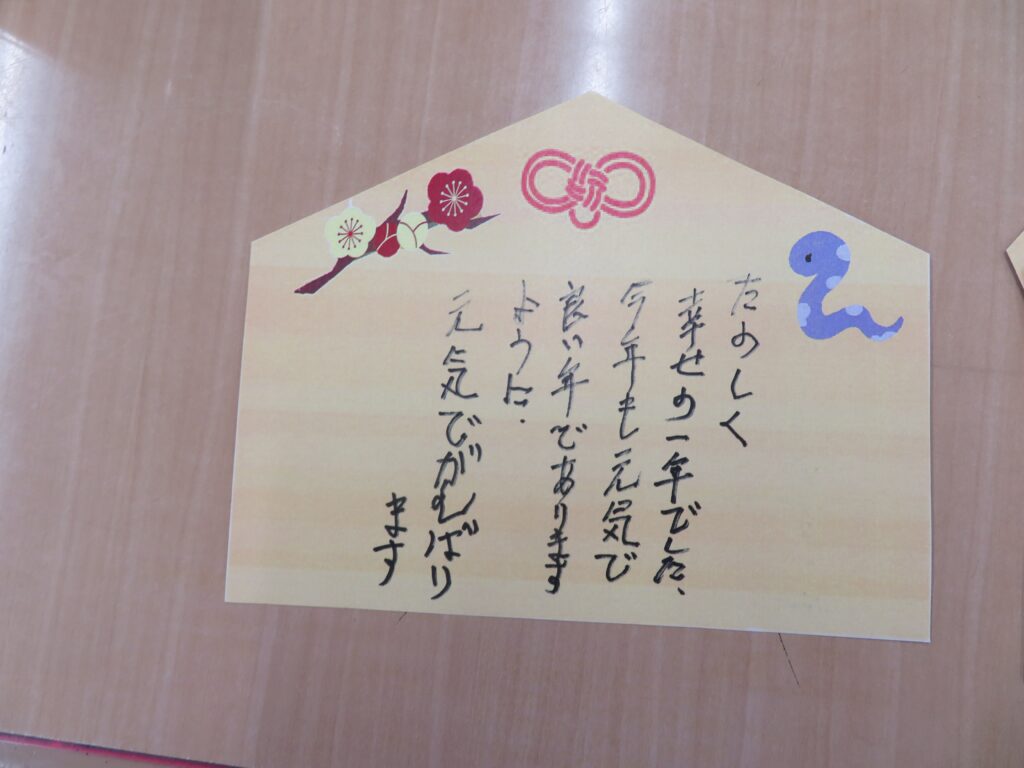 たのしく
幸せの一年でした、
今年も元気で
良い年であります
ように.
元気でがんばり
ます